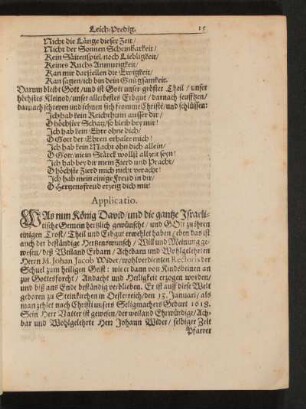 Leich-Predig. 15
Nicht die Länge dieser Zeit/
Nicht der Sonnen Scheinbarkeit/
Kein Säitenspiel, noch Liebligkeit/
Keines Ruchs Anmutigkeit/
Kan mir darstellen die Ewigkeit/
Kan sagen/ich bin dein Gnugsamkeit.
Darum bleibt Gott/und ist Gott unser gröster Theil/unser
höchstes Kleinod/unser allerbestes Erbgut/darnach seufftzen/
darnach schreyen und sehnen sich fromme Christen/und schliessen:
Ich hab kein Reichthum ausser dir/
O höchster Schatz/so bleib bey mir!
Ich hab kein Ehre ohne dich/
O Gott der Ehren erhalte mich!
Ich hab kein Macht ohn dich allein/
O Gott mein Stärck wollst allzeit seyn!
Ich hab bey dir mein Zierd und Pracht/
O höchste Zierd mich nicht veracht!
Ich hab mein einige Freud in dir/
O Hertzensfreud erzeig dich mir!
Applicatio.
WAs nun König David/und die gantze Israeli-
tische Gemein hertzlich gewünscht/und Gott zu ihrem
einigen Trost/Theil und Erbgut erwehlet haben/eben das ist
auch der beständige Hertzenswunsch/Will und Meinung gewe-
sen/deß Weiland Erbarn/Achtbarn und Wohlgelehrten
Herrn M. Johan. Jacob Wider/wohlverdienten Rectoris der
Schuel zum heiligen Geist: wie er dann von Kindsbeinen an
zur Gottesforcht/Andacht und Heiligkeit erzogen worden/
und biß ans Ende beständig verblieben. Er ist auff diese Welt
geboren zu Steinkirchen in Oesterreich/den 15. Januarij/als
man zehlet nach Christi unsers Seligmachers Geburt 1618.
Sein Herr Vatter ist gewesen/der weiland Ehrwürdige/Ach-
bar und Wohlgelehrte Herr Johann Wider/selbiger Zeit
Pfarrer